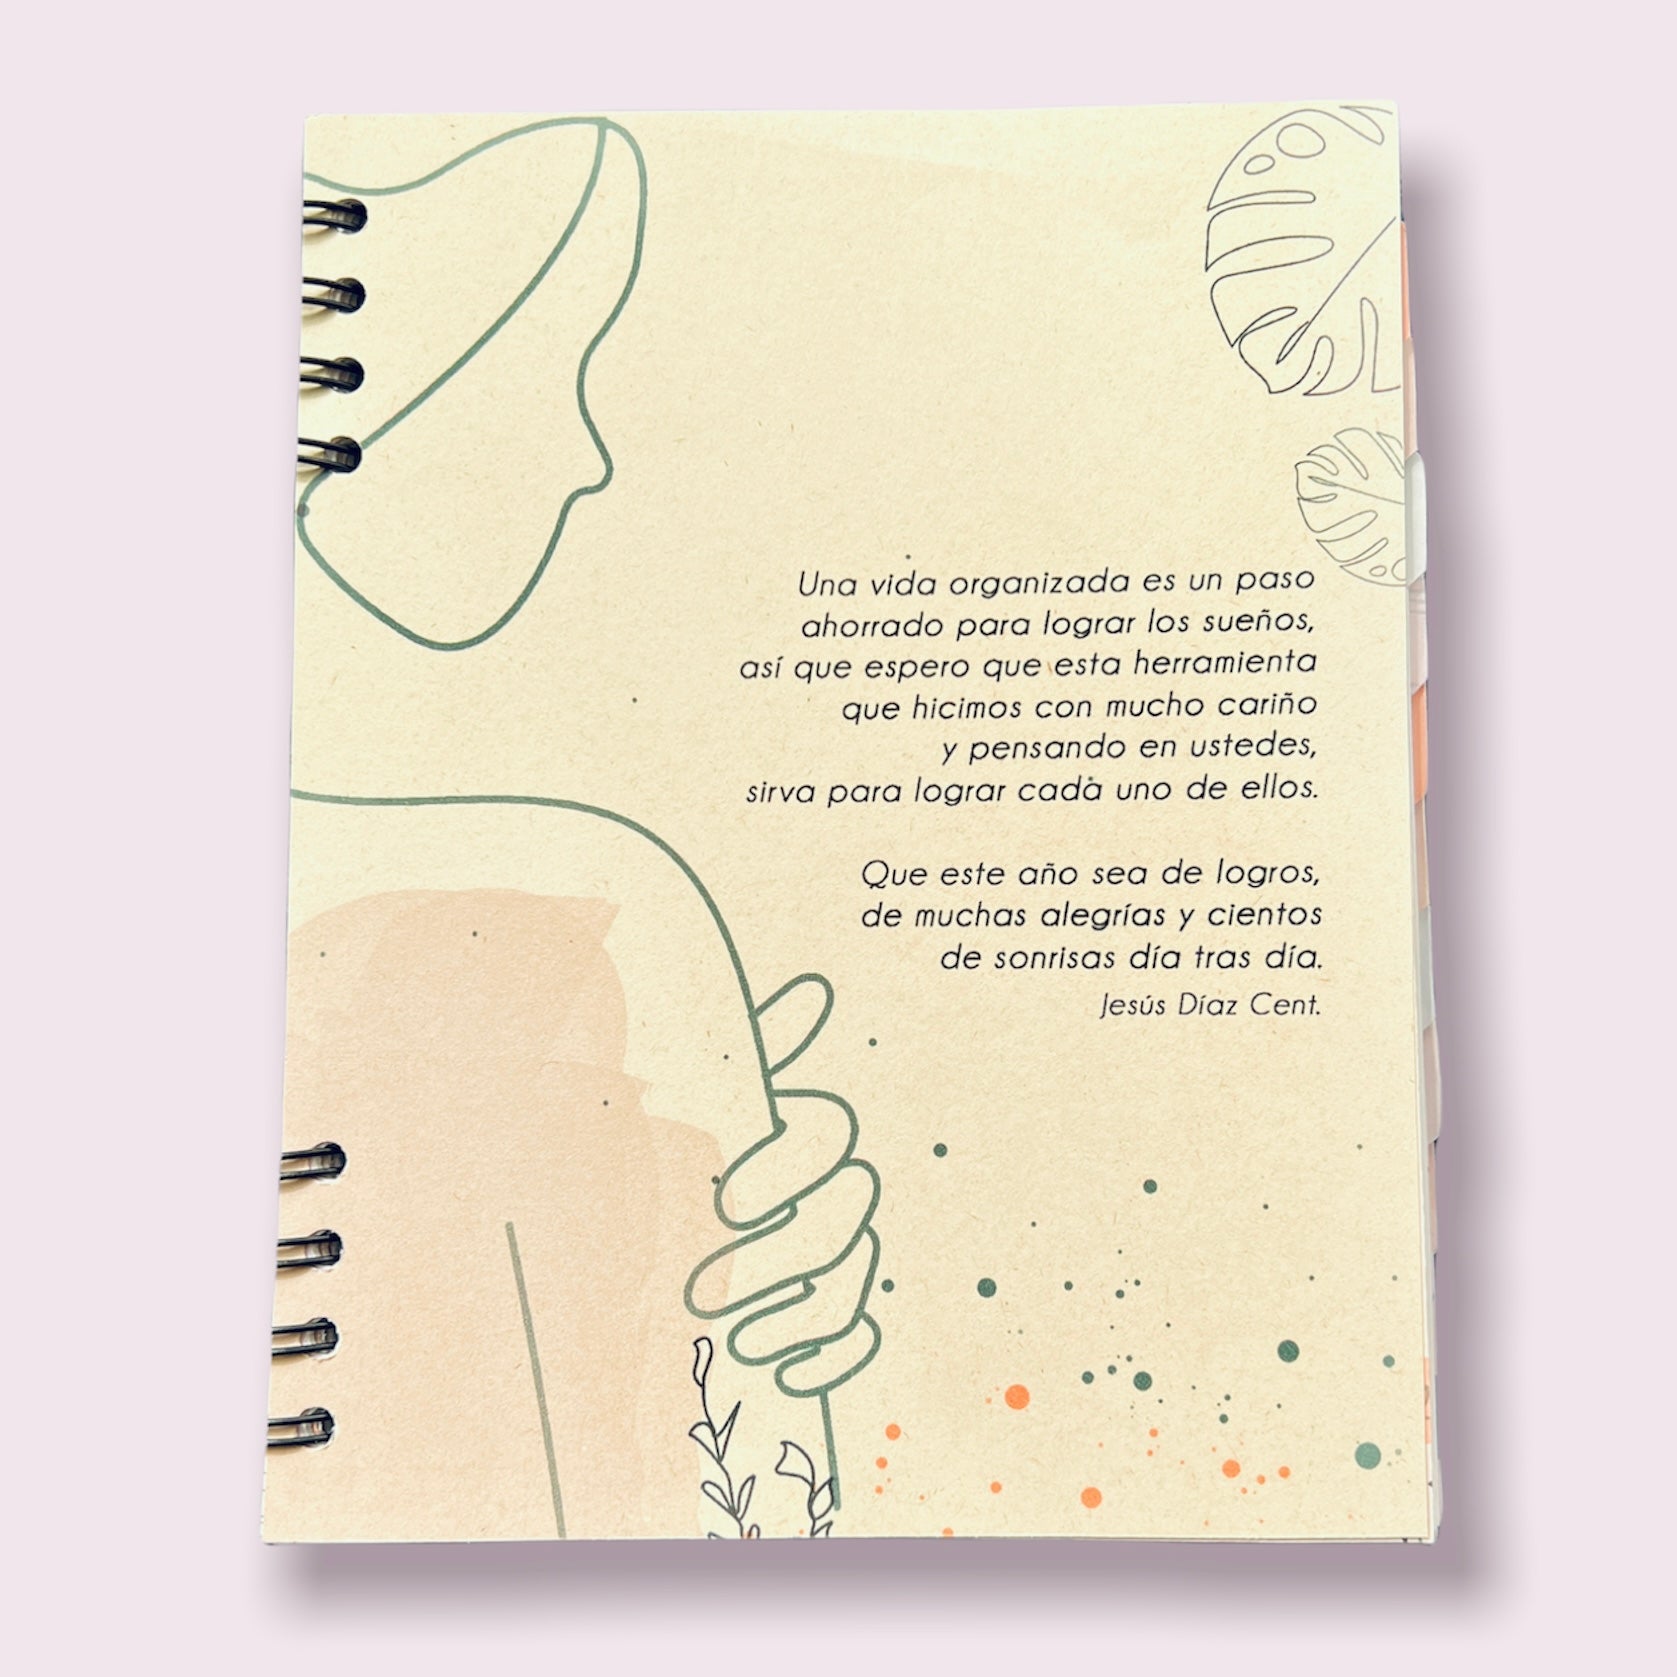 Una vida organizada es un paso
ahorrado para lograr los sueños,
así que espero que esta herramienta
que hicimos con mucho cariño
y pensando en ustedes,
sirva para lograr cada uno de ellos.
Que este año sea de logros,
de muchas alegrías y cientos
de sonrisas día tras día.
Jesús Díaz Cent.